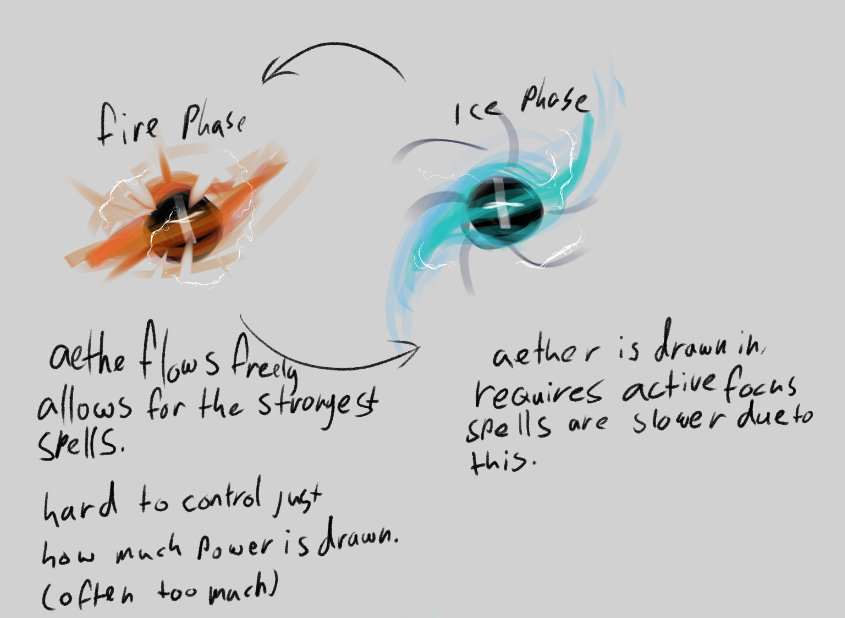 fire Phase
aethe flows freely
allows for the strongest
spells.
hard to control just
how much power is drawn.
(often too much)
Ice Phase
aether is drawn in,
requires active focus
spells are slower due to
this.